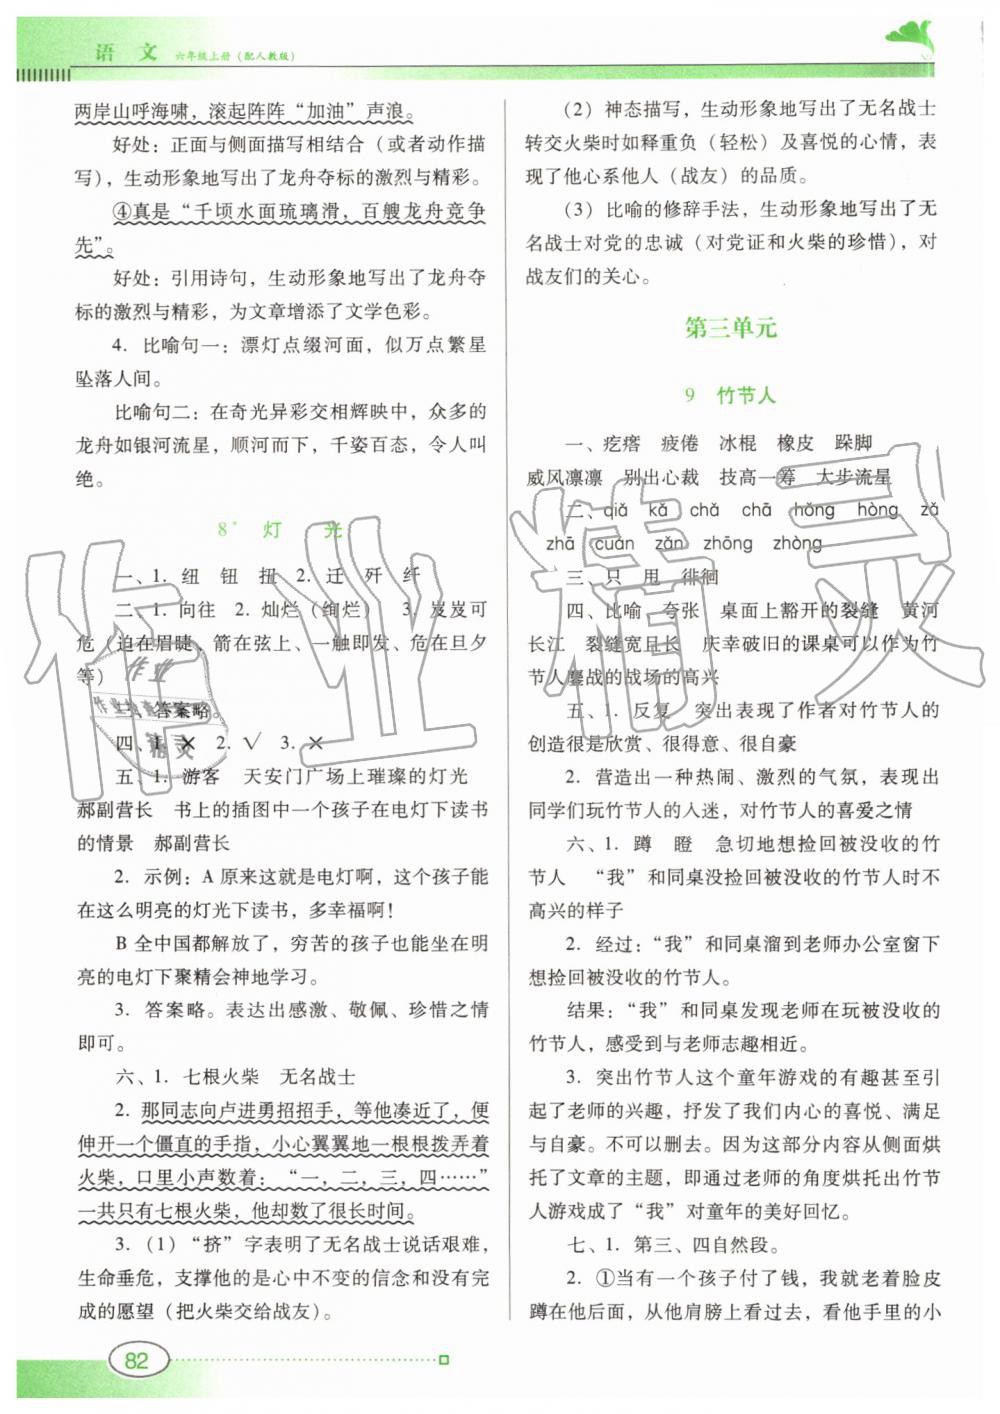 语 文 六年级上册（配人教版）
两岸山呼海啸，滚起阵阵“加油”声浪。
好处：正面与侧面描写相结合（或者动作描
写），生动形象地写出了龙舟夺标的激烈与精彩。
④真是“千顷水面琉璃滑，百艘龙舟竞争
先”。
好处：引用诗句，生动形象地写出了龙舟夺
标的激烈与精彩，为文章增添了文学色彩。
4. 比喻句一：漂灯点缀河面，似万点繁星
坠落人间。
比喻句二：在奇光异彩交相辉映中，众多的
龙舟如银河流星，顺河而下，千姿百态，令人叫
绝。
8* 灯 光
一、1. 纽 钮 扭 2. 迁 歼 纤
二、1. 向往 2. 灿烂（绚烂） 3. 岌岌可
危（迫在眉睫、箭在弦上、一触即发、危在旦夕
等）
三、答案略。
四、1. ✕ 2. √ 3. ✕
五、1. 游客 天安门广场上璀璨的灯光
郝副营长 书上的插图中一个孩子在电灯下读书
的情景 郝副营长
2. 示例：A 原来这就是电灯啊，这个孩子能
在这么明亮的灯光下读书，多幸福啊！
B 全中国都解放了，穷苦的孩子也能坐在明
亮的电灯下聚精会神地学习。
3. 答案略。表达出感激、敬佩、珍惜之情
即可。
六、1. 七根火柴 无名战士
2. 那同志向卢进勇招招手，等他凑近了，便
伸开一个僵直的手指，小心翼翼地一根根拨弄着
火柴，口里小声数着：“一，二，三，四……”
一共只有七根火柴，他却数了很长时间。
3.（1）“挤”字表明了无名战士说话艰难，
生命垂危，支撑他的是心中不变的信念和没有完
成的愿望（把火柴交给战友）。
（2）神态描写，生动形象地写出了无名战士
转交火柴时如释重负（轻松）及喜悦的心情，表
现了他心系他人（战友）的品质。
（3）比喻的修辞手法，生动形象地写出了无
名战士对党的忠诚（对党证和火柴的珍惜），对
战友们的关心。
第三单元
9 竹节人
一、疙瘩 疲倦 冰棍 橡皮 跺脚
威风凛凛 别出心裁 技高一筹 大步流星
二、qiǎ kǎ chà chā hǒng hòng zǎ
zhā cuán zǎn zhōng zhòng
三、只 甩 徘徊
四、比喻 夸张 桌面上豁开的裂缝 黄河
长江 裂缝宽且长 庆幸破旧的课桌可以作为竹
节人鏖战的战场的高兴
五、1. 反复 突出表现了作者对竹节人的
创造很是欣赏、很得意、很自豪
2. 营造出一种热闹、激烈的气氛，表现出
同学们玩竹节人的入迷，对竹节人的喜爱之情
六、1. 蹲 瞪 急切地想捡回被没收的竹
节人 “我”和同桌没捡回被没收的竹节人时不
高兴的样子
2. 经过：“我”和同桌溜到老师办公室窗下
想捡回被没收的竹节人。
结果：“我”和同桌发现老师在玩被没收的
竹节人，感受到与老师志趣相近。
3. 突出竹节人这个童年游戏的有趣甚至引
起了老师的兴趣，抒发了我们内心的喜悦、满足
与自豪。不可以删去。因为这部分内容从侧面烘
托了文章的主题，即通过老师的角度烘托出竹节
人游戏成了“我”对童年的美好回忆。
七、1. 第三、四自然段。
2. ①当有一个孩子付了钱，我就老着脸皮
蹲在他后面，从他肩膀上看过去，看他手里的小
82
作业精灵